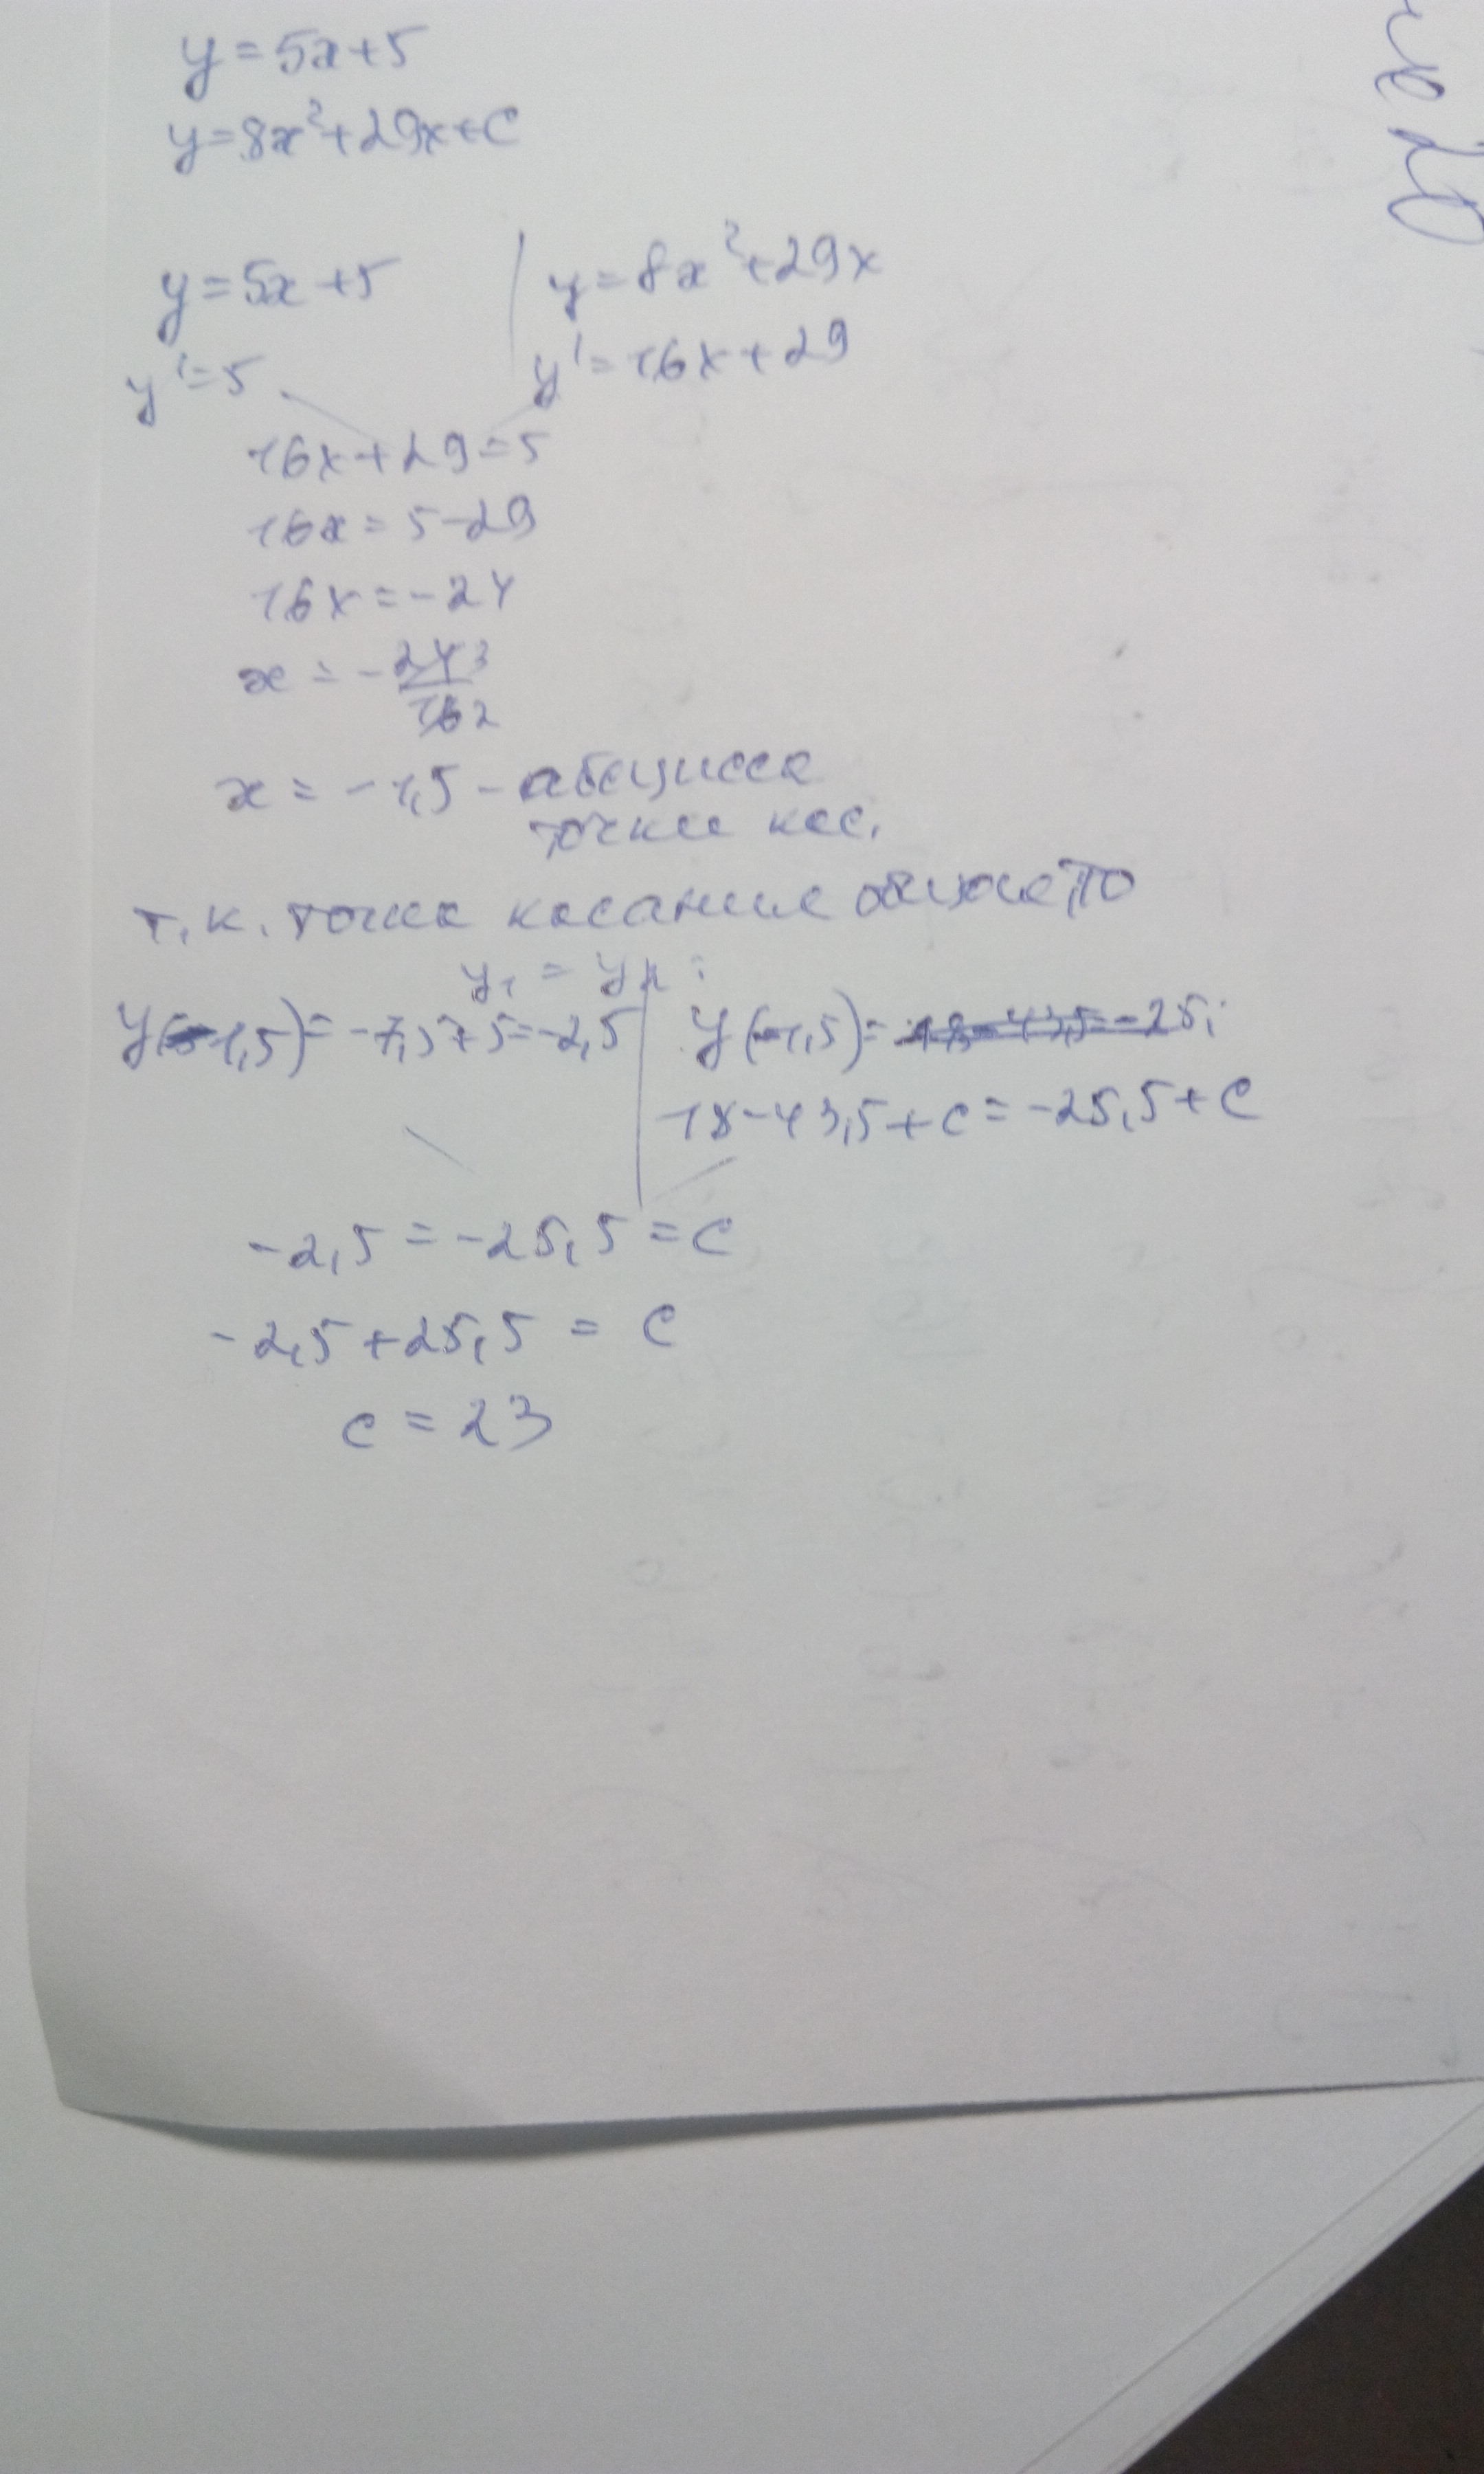 y = 5x + 5
y = 8x² + 29x + c
y = 5x + 5 | y = 8x² + 29x
y' = 5 y' = 16x + 29
16x + 29 = 5
16x = 5 - 29
16x = -24
x = - 24 3 / 16 2
x = -1,5 - абсцисса
точки кас.
т.к. точка касания общая, то
y₁ = y :
y(-1,5) = -7,5 + 5 = -2,5 | y(-1,5) = 18 - 43,5 = -25,
18 - 43,5 + c = -25,5 + c
-2,5 = -25,5 = c
-2,5 + 25,5 = c
c = 23